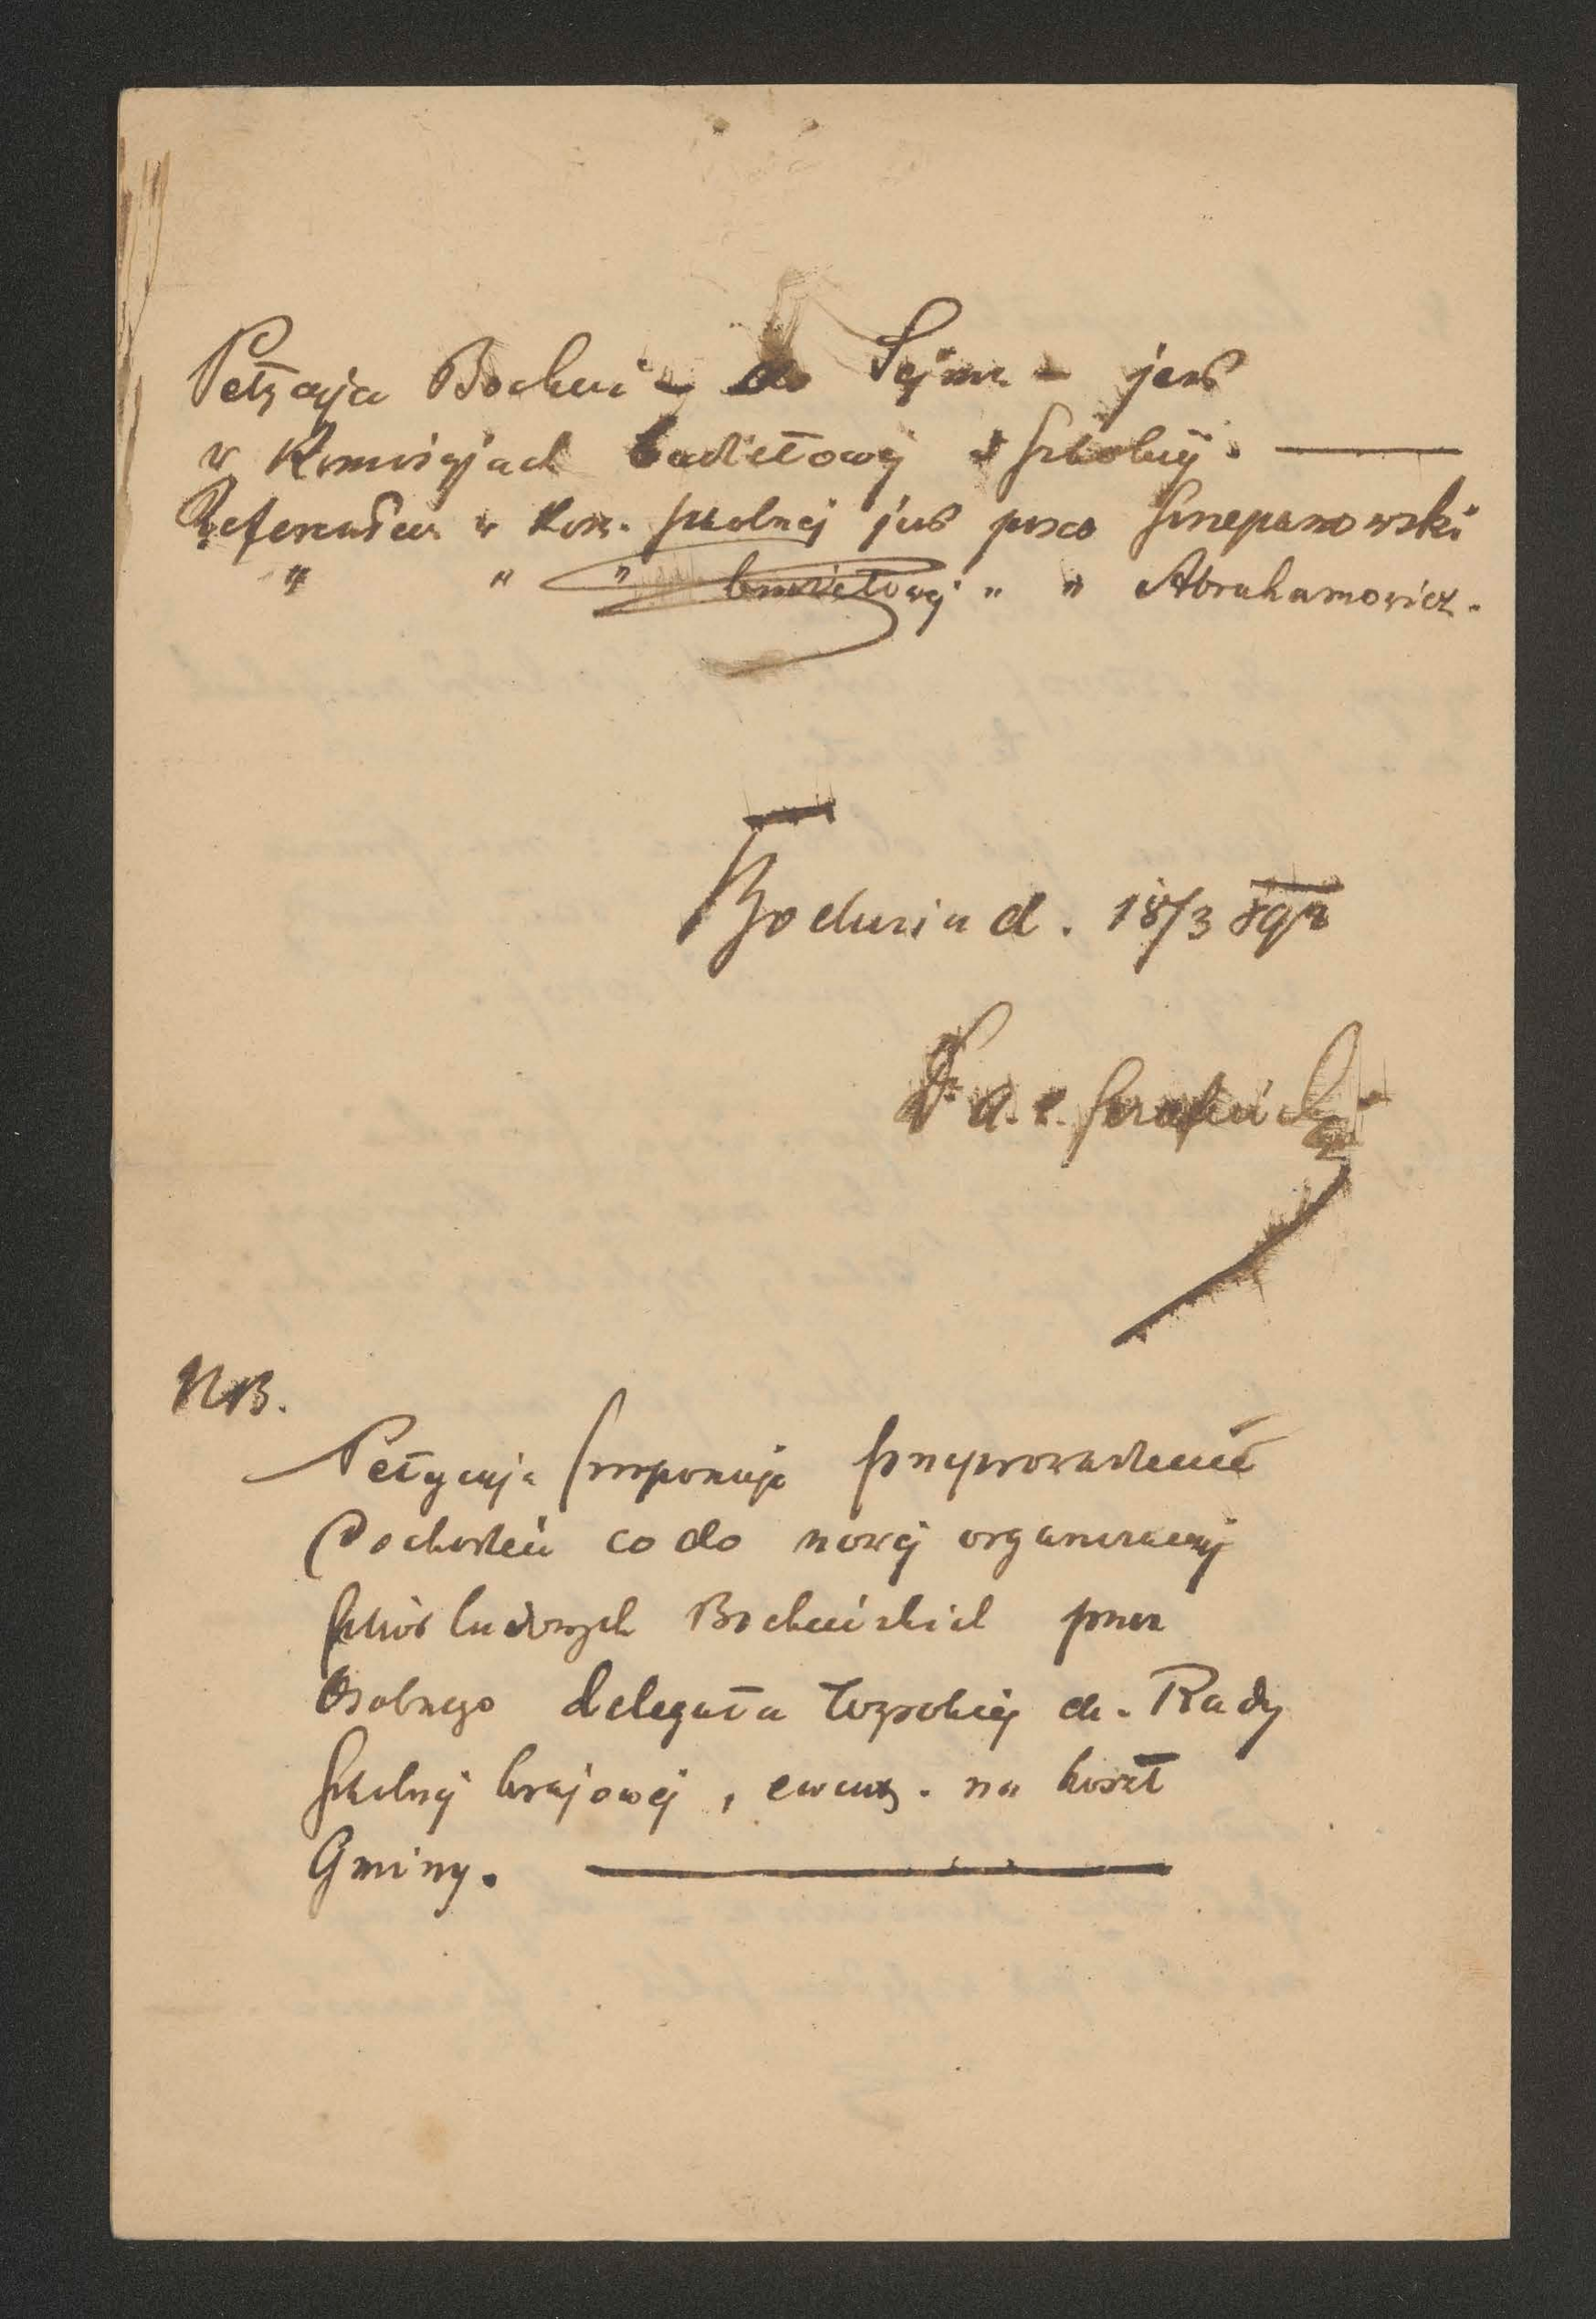 Petycyja Bochni – do Sejmu – jest
w Komisyjach budżetowej i szkolnej. —
Referentem w Kom. szkolnej jest poseł Szczepanowski
" " " budżetowej " " Abrahamowicz.
Bochnia d. 18/3 892
Dr a. e.
NB.
Petycyja proponuje przeprowadzenie
Dochodzeń co do nowej organizacyj
szkół ludowych Bocheńskich przez
Osobnego delegata Wysokiej ck. Rady
szkolnej krajowej, ewent. na koszt
Gminy. —